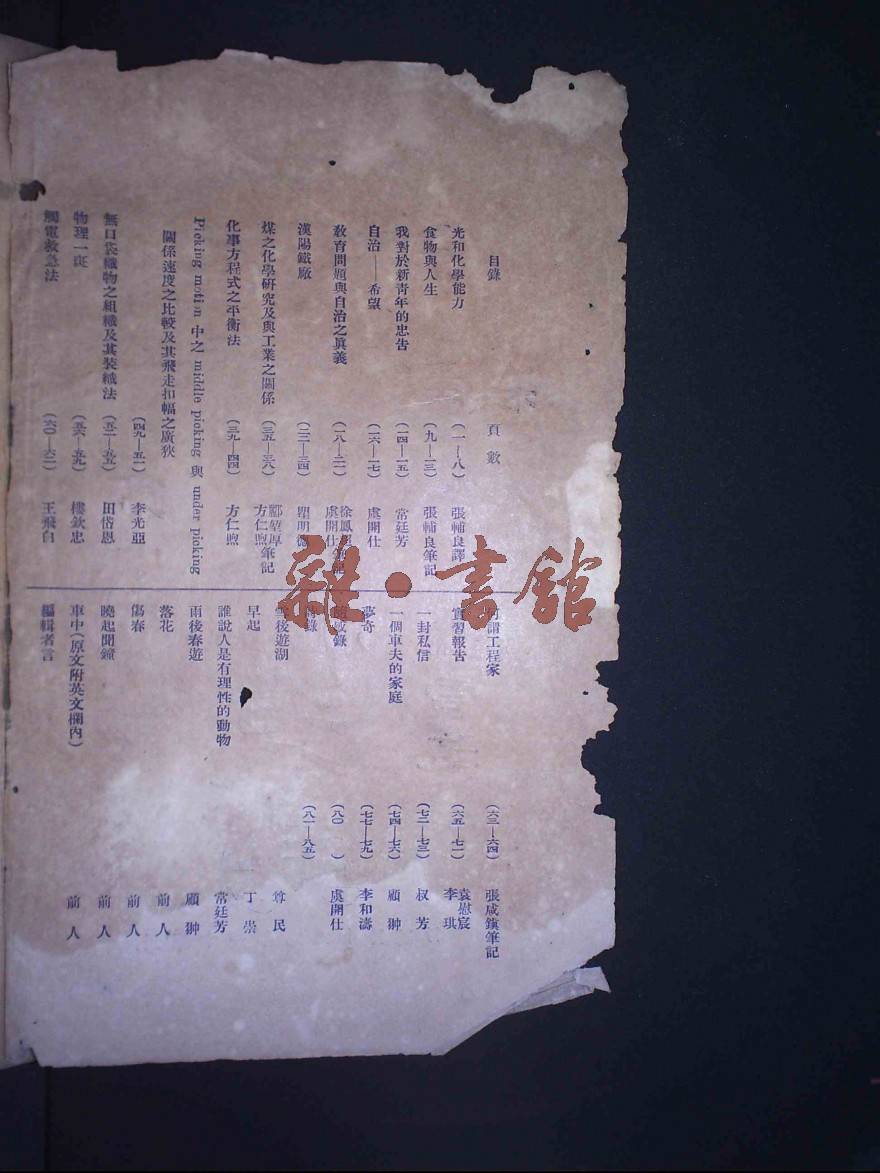 目錄 頁數
光和化學能力 (一—八) 張輔良譯
食物與人生 (九—一三) 張輔良筆記
我對於新青年的忠告 (一四—一五) 常廷芳
自治——希望 (一六—一七) 虞開仕
教育問題與自治之眞義 (一八—二一) 徐鳳 虞開仕筆記
漢陽鐵廠 (二二—三四) 瞿明德
煤之化學硏究及與工業之關係 (三五—三八) 方仁煦 筆記
化事方程式之平衡法 (三九—四四) 方仁煦
Picking motion 中之 middle picking 與 under picking
關係速度之比較及其飛走扣幅之廣狹 (四九—五一) 李光亞
無口袋織物之組織及其裝織法 (五二—五五) 田岱恩
物理一斑 (五六—五九) 樓欽忠
觸電救急法 (六〇—六二) 王飛白
謂工程家 (六三—六四) 張咸鎮筆記
實習報告 (六五—七一) 袁慰宸 李琪
一封私信 (七二—七三) 叔芳
一個車夫的家庭 (七四—七六) 顧翀
夢奇 (七七—七九) 李和濤
感錄 (八〇 ) 虞開仕
錄 (八一—八五)
雪後遊湖 尊民
早起 丁崇
誰說人是有理性的動物 常廷芳
雨後春遊 顧翀
落花 前人
傷春 前人
曉起聞鐘 前人
車中(原文附英文欄內) 前人
編輯者言
雜·書舘